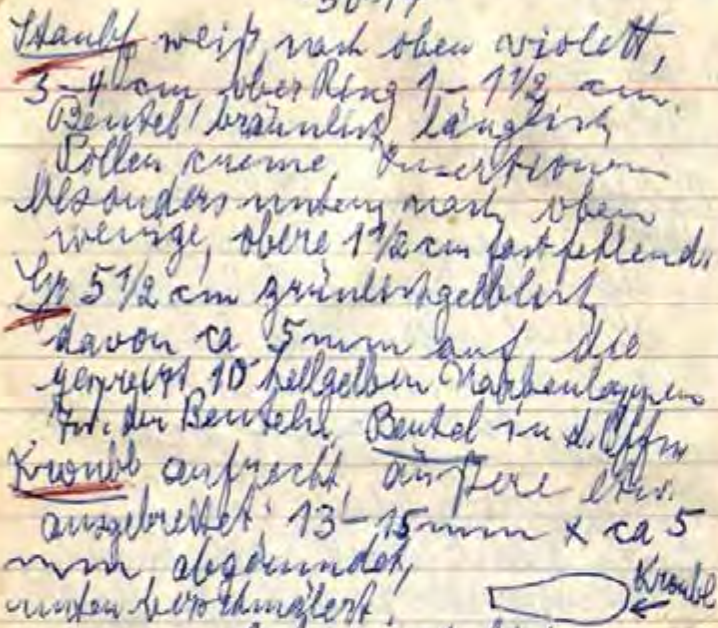 Staubf weiß nach oben violett,
3-4 cm ober Ring 1-1 1/2 cm.
Beutel bräunlich länglich
Pollen creme, Insertionen
besonders unten, nach oben
wenige, obere 1 1/2 cm fast fehlend.
Gr 5 1/2 cm grünlichgelblich
davon ca 5mm auf die
gespreizt 10 hellgelben Narbenlappen
zw. der Beuteln, Beutel in d. Öffn
Kronbl aufrecht, äußere etw.
ausgebreitet 13-15mm x ca 5
mm, abgerundet,
unten verschmälert,
Kronbl